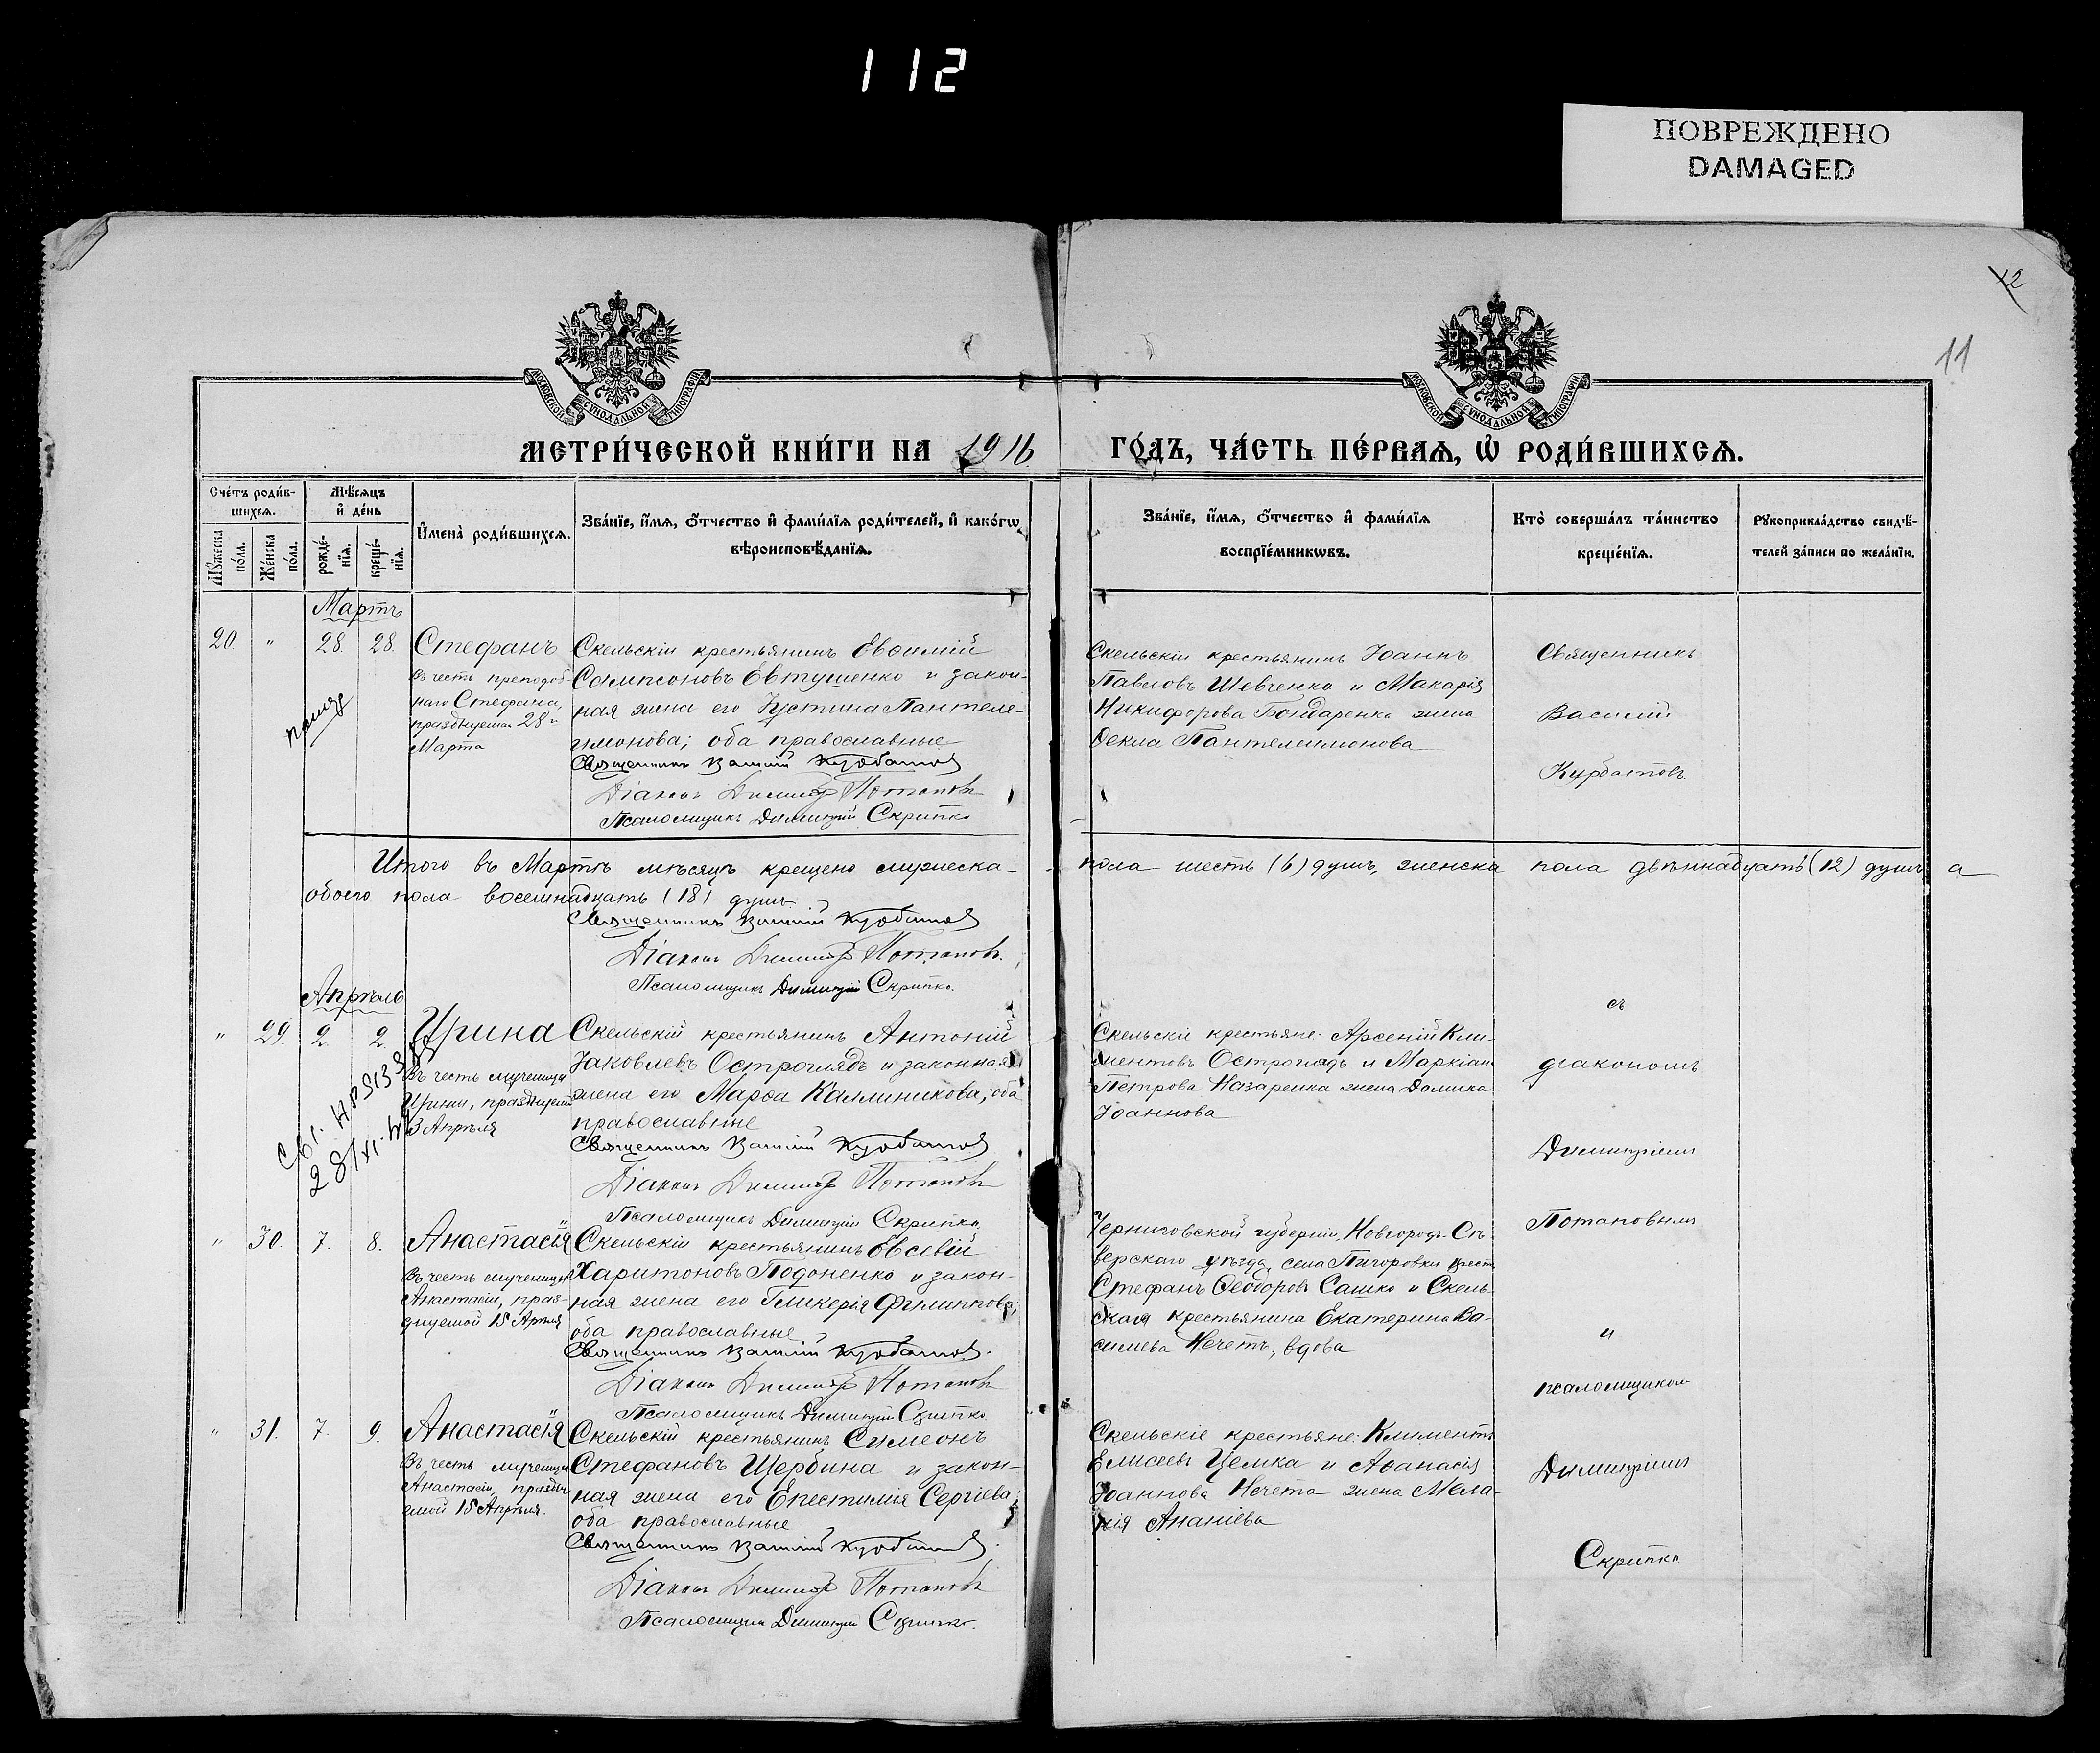 112
ПОВРЕЖДЕНО
DAMAGED
12
11
МОСКОВСКОЙ СУНОДАЛЬНОЙ ТИПОГРАФІИ
МОСКОВСКОЙ СУНОДАЛЬНОЙ ТИПОГРАФІИ
МЕТРИ́ЧЕСКОЙ КНИ́ГИ НА 1916
ГО́ДЪ, ЧА́СТЬ ПЕ́РВАѦ, Ѡ҆ РОДИ́ВШИХСѦ.
Сче́тъ роди́в-
шихсѧ.
Мѣ́сѧцъ
и҆ де́нь
Мꙋ́жеска
по́ла.
Же́нска
по́ла.
рожде́-
нїѧ.
креще́-
нїѧ.
И҆мена̀ роди́вшихсѧ.
Зва́нїе, и҆́мѧ, ѻ҆́тчество и҆ фами́лїѧ роди́телей, и҆ како́гѡ
вѣроисповѣ́данїѧ.
Зва́нїе, и҆́мѧ, ѻ҆́тчество и҆ фами́лїѧ
воспрїе́мникѡвъ.
Кто̀ соверша́лъ та́инство
креще́нїѧ.
Рꙋкоприкла́дство свидѣ́-
телей за́писи по жела́нїю.
Мартъ
20. " 28. 28. Стефанъ
Въ честь преподоб-
наго Стефана,
празднуемаго 28го
Марта
Скельскій крестьянинъ Евѳимій
Сампсоновъ Евтушенко и закон-
ная жена его Іустина Пантеле-
имонова; оба православные
Священникъ Василій Курбатовъ
Діаконъ Димитр Потаповъ
Псаломщикъ Димитрій Скрипко
Скельскій крестьянинъ Іоаннъ
Павловъ Шевченко и Макарія
Никифорова Бондаренка жена
Ѳекла Пантелеимонова
Священникъ
Василій
Курбатовъ
Итого въ Мартѣ мѣсяцѣ крещено мужеска-
пола шесть (6) душъ, женска пола двѣннадцать (12) душъ, а
обоего пола восемнадцать (18) душъ.
Священникъ Василій Курбатовъ
Діаконъ Димитр Потаповъ.
Псаломщикъ Димитрій Скрипко.
Апрѣль
" 29. 2. 2. Ирина
Въ честь мученицы
Ирины, празднуемой
3 Апрѣля
28/XI.
Скельскій крестьянинъ Антоній
Іаковлевъ Остроглядъ и законная
жена его Марѳа Каллиникова; оба
православные
Священникъ Василій Курбатовъ
Діаконъ Димитр Потаповъ
Псаломщикъ Димитрій Скрипко.
Скельскіе крестьяне: Арсеній Кли-
ментовъ Остроглядъ и Маркіана
Петрова Назаренка жена Домника
Іоаннова
съ
діакономъ
Димитріемъ
Потаповымъ
" 30. 7. 8. Анастасія
Въ честь мученицы
Анастасіи, праз-
днуемой 15 Апрѣля
Скельскій крестьянинъ Евсевій
Харитоновъ Подоненко и закон-
ная жена его Гликерія Филиппова;
оба православные.
Священникъ Василій Курбатовъ.
Діаконъ Димитр Потаповъ
Псаломщикъ Димитрій Скрипко
Черниговской губерніи, Новгородъ-Сѣ-
верскаго уѣзда, села Пигоровки крест.
Стефанъ Ѳеодоровъ Сашко и Скель-
ская крестьянина Екатерина Ва-
сильева Нечетъ, вдова
и
псаломщикомъ
" 31. 7. 9. Анастасія
Въ честь мученицы
Анастасіи, праздну-
емой 15 Апрѣля.
Скельскій крестьянинъ Симеонъ
Стефановъ Щербина и закон-
ная жена его Епестимія Сергіева;
оба православные
Священникъ Василій Курбатовъ.
Діаконъ Димитр Потаповъ
Псаломщикъ Димитрій Скрипко.
Скельскіе крестьяне: Климентъ
Елисеевъ Целика и Аѳанасія
Іоаннова Нечета жена Мела-
нія Ананіева
Димитріемъ
Скрипко.